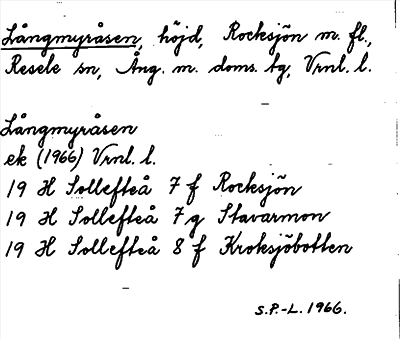 Långmyråsen, höjd, Rocksjön m. fl.,
Resele sn, Ång. m. doms. tg, Vrnl. l.
Långmyråsen
ek (1966) Vrnl. l.
19 H Sollefteå 7 f Rocksjön
19 H Sollefteå 7 g Stavarmon
19 H Sollefteå 8 f Kroksjöbotten
S.P.-L. 1966.